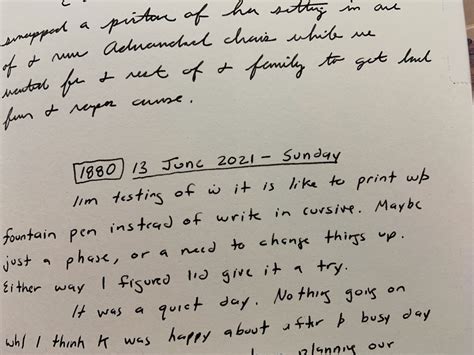 snapped a picture of her sitting in one
of & new Adirondack chairs while we
waited for & rest of & family to get back
from &
1880 13 June 2021 – Sunday
Iim testing of ẇ it is like to print w/a
fountain pen instead of write in cursive. Maybe
just a phase, or a need to change things up.
Either way I figured I'd give it a try.
It was a quiet day. Nothing going on
wh/ I think K was happy about after a busy day
planning our